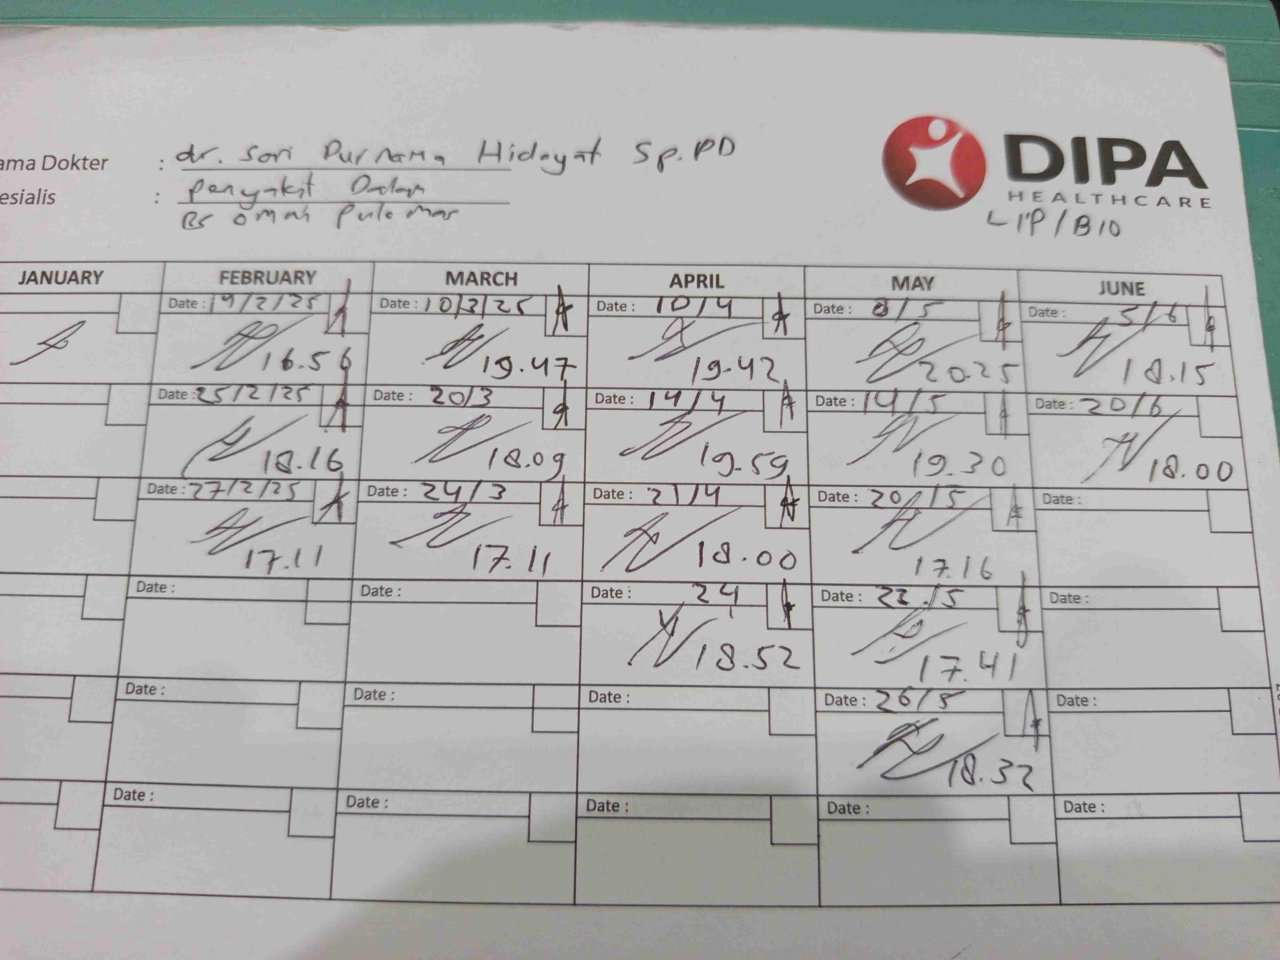 ama Dokter : dr. Sori Purnama Hidayat Sp.PD
esialis : Penyakit Dalam
RS Omah Pulomas
DIPA
HEALTHCARE
LIP/B10
JANUARY FEBRUARY MARCH APRIL MAY JUNE
Date : 19/2/25 Date : 10/3/25 Date : 10/4 Date : 8/5 Date : 5/6
16.56 19.47 19.42 20.25 18.15
Date : 25/2/25 Date : 20/3 Date : 14/4 Date : 14/5 Date : 20/6
18.16 18.09 19.59 19.30 18.00
Date : 27/2/25 Date : 24/3 Date : 21/4 Date : 20/5 Date :
17.11 17.11 18.00 17.16
Date : Date : Date : 24 Date : 22/5 Date :
18.52 17.41
Date : Date : Date : Date : 26/5 Date :
18.32
Date : Date : Date : Date : Date :